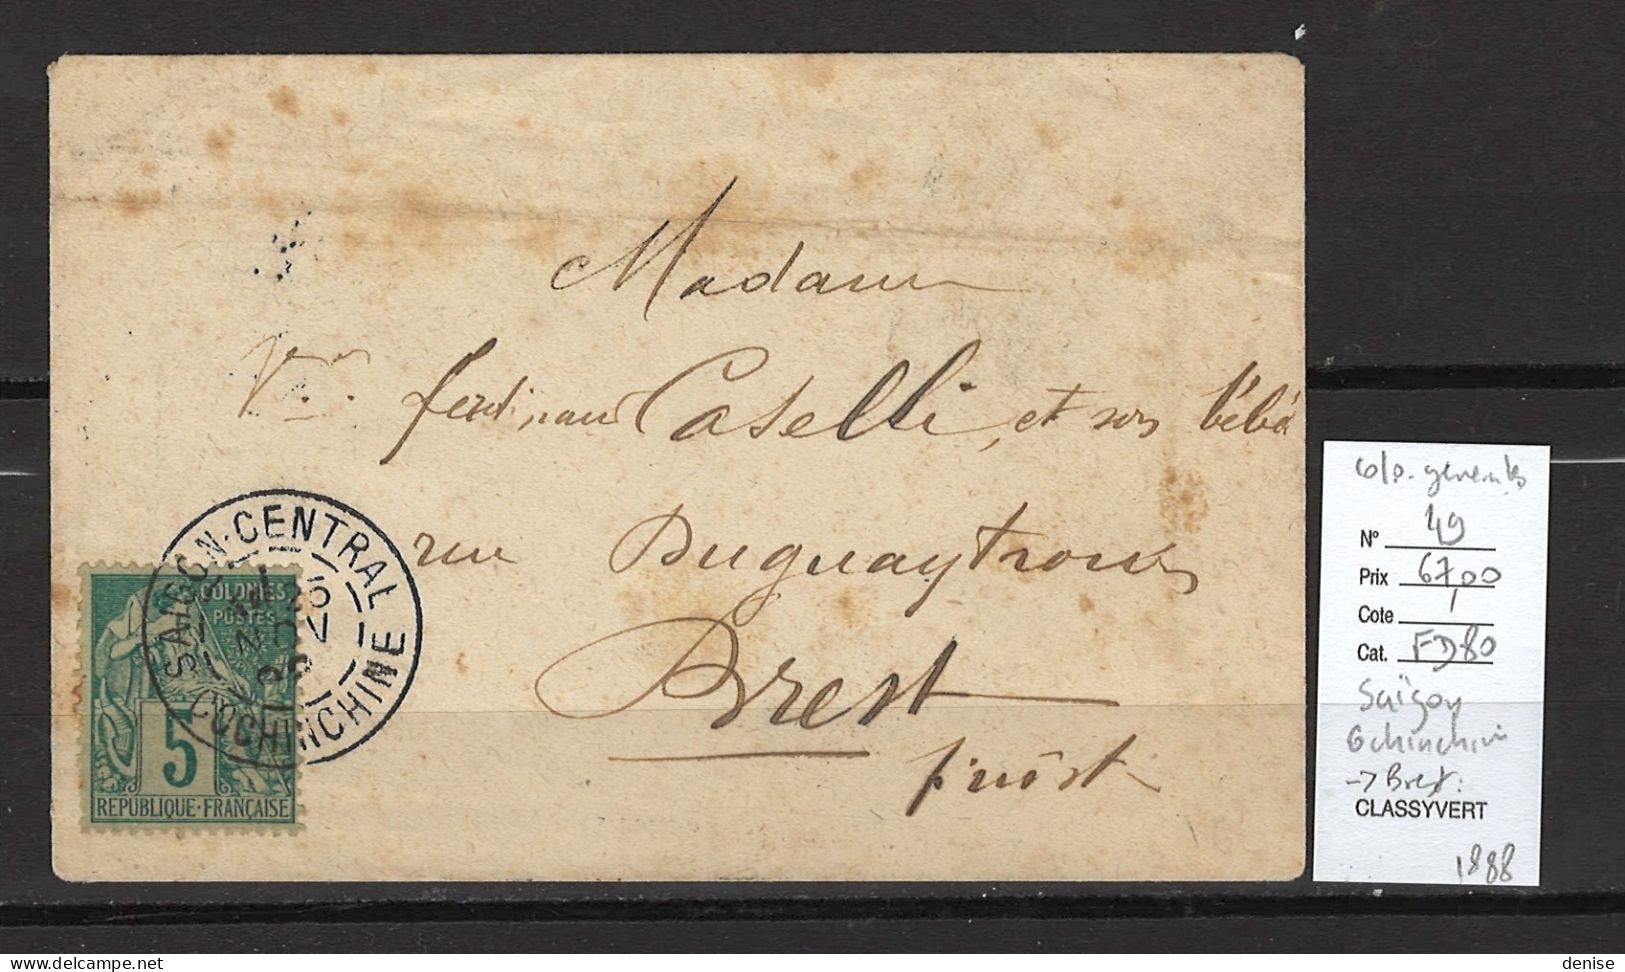 Madame
Ferdinand Caselli, et son bébé
rue Duguaytrouin
Brest
SAIGON-CENTRAL
25
NOV
88
COCHINCHINE
COLONIES
POSTES
5
REPUBLIQUE-FRANÇAISE
N° 49
Prix 67,00
Cote
Cat. FD80
Saïgon
Cochinchine
-> Brest.
CLASSYVERT
1888
delcampe.net
denise